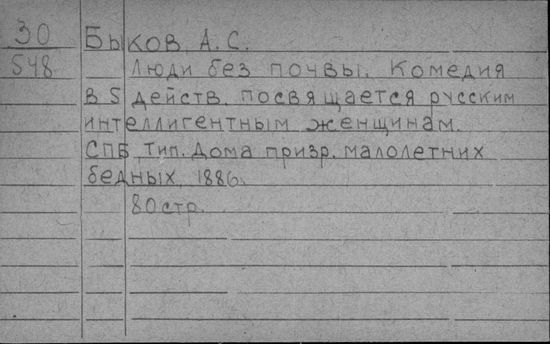 30 Быков, А. С.
548 Люди без почвы. Комедия
в 5 действ. посвящается русским
интеллигентным женщинам.
СПБ тип. Дома призр. малолетних
бедных, 1886.
80 стр.